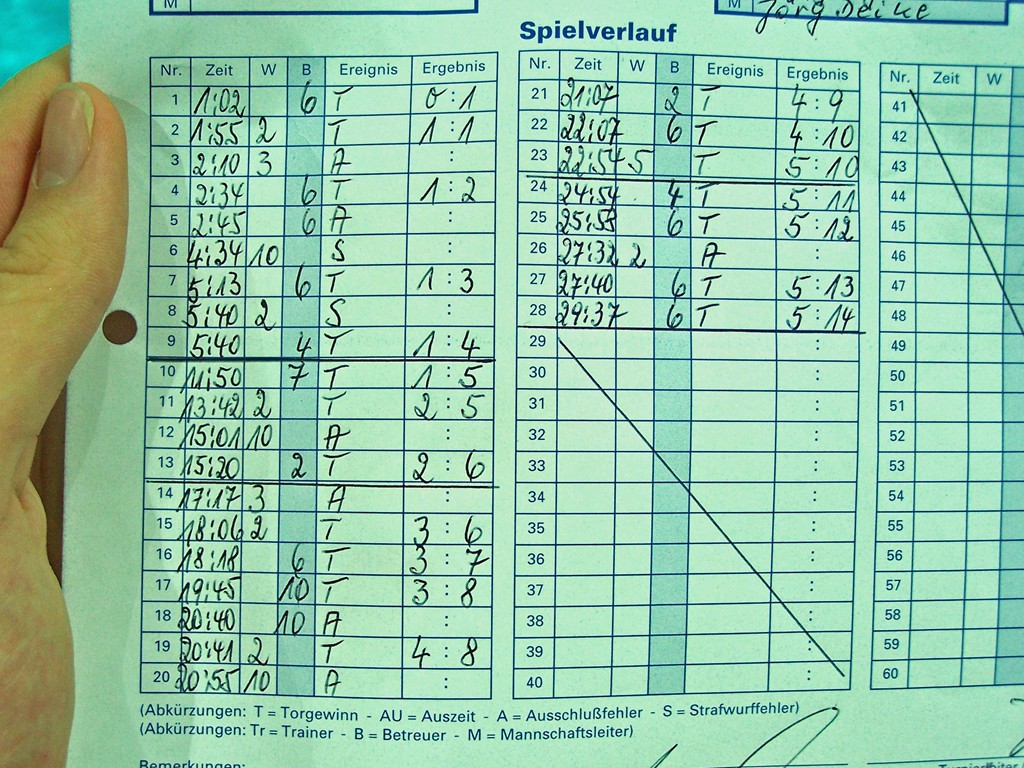 M
M Jörg Deike
Spielverlauf
Nr. Zeit W B Ereignis Ergebnis
1 1:02 6 T 0:1
2 1:55 2 T 1:1
3 2:10 3 A :
4 2:34 6 T 1:2
5 2:45 6 A :
6 4:34 10 S :
7 5:13 6 T 1:3
8 5:40 2 S :
9 5:40 4 T 1:4
10 11:50 7 T 1:5
11 13:42 2 T 2:5
12 15:01 10 A :
13 15:20 2 T 2:6
14 17:17 3 A :
15 18:06 2 T 3:6
16 18:18 6 T 3:7
17 19:45 10 T 3:8
18 20:40 10 A :
19 20:41 2 T 4:8
20 20:55 10 A :
Nr. Zeit W B Ereignis Ergebnis
21 21:07 2 T 4:9
22 22:07 6 T 4:10
23 22:54 5 T 5:10
24 24:54 4 T 5:11
25 25:55 6 T 5:12
26 27:32 2 A :
27 27:40 6 T 5:13
28 29:37 6 T 5:14
29 :
30 :
31 :
32 :
33 :
34 :
35 :
36 :
37 :
38 :
39 :
40 :
Nr. Zeit W
41
42
43
44
45
46
47
48
49
50
51
52
53
54
55
56
57
58
59
60
(Abkürzungen: T = Torgewinn - AU = Auszeit - A = Ausschlußfehler - S = Strafwurffehler)
(Abkürzungen: Tr = Trainer - B = Betreuer - M = Mannschaftsleiter)
Bemerkungen: